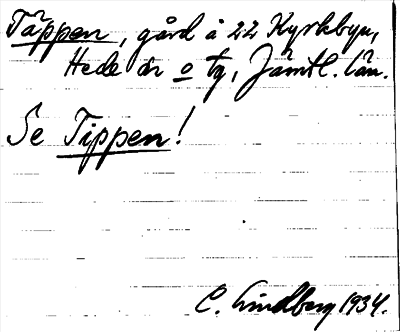 Täppen, gård å 22 Kyrkbyn,
Hede sn o tg, Jämtl. län.
Se Tippen!
C. Lindberg 1934.